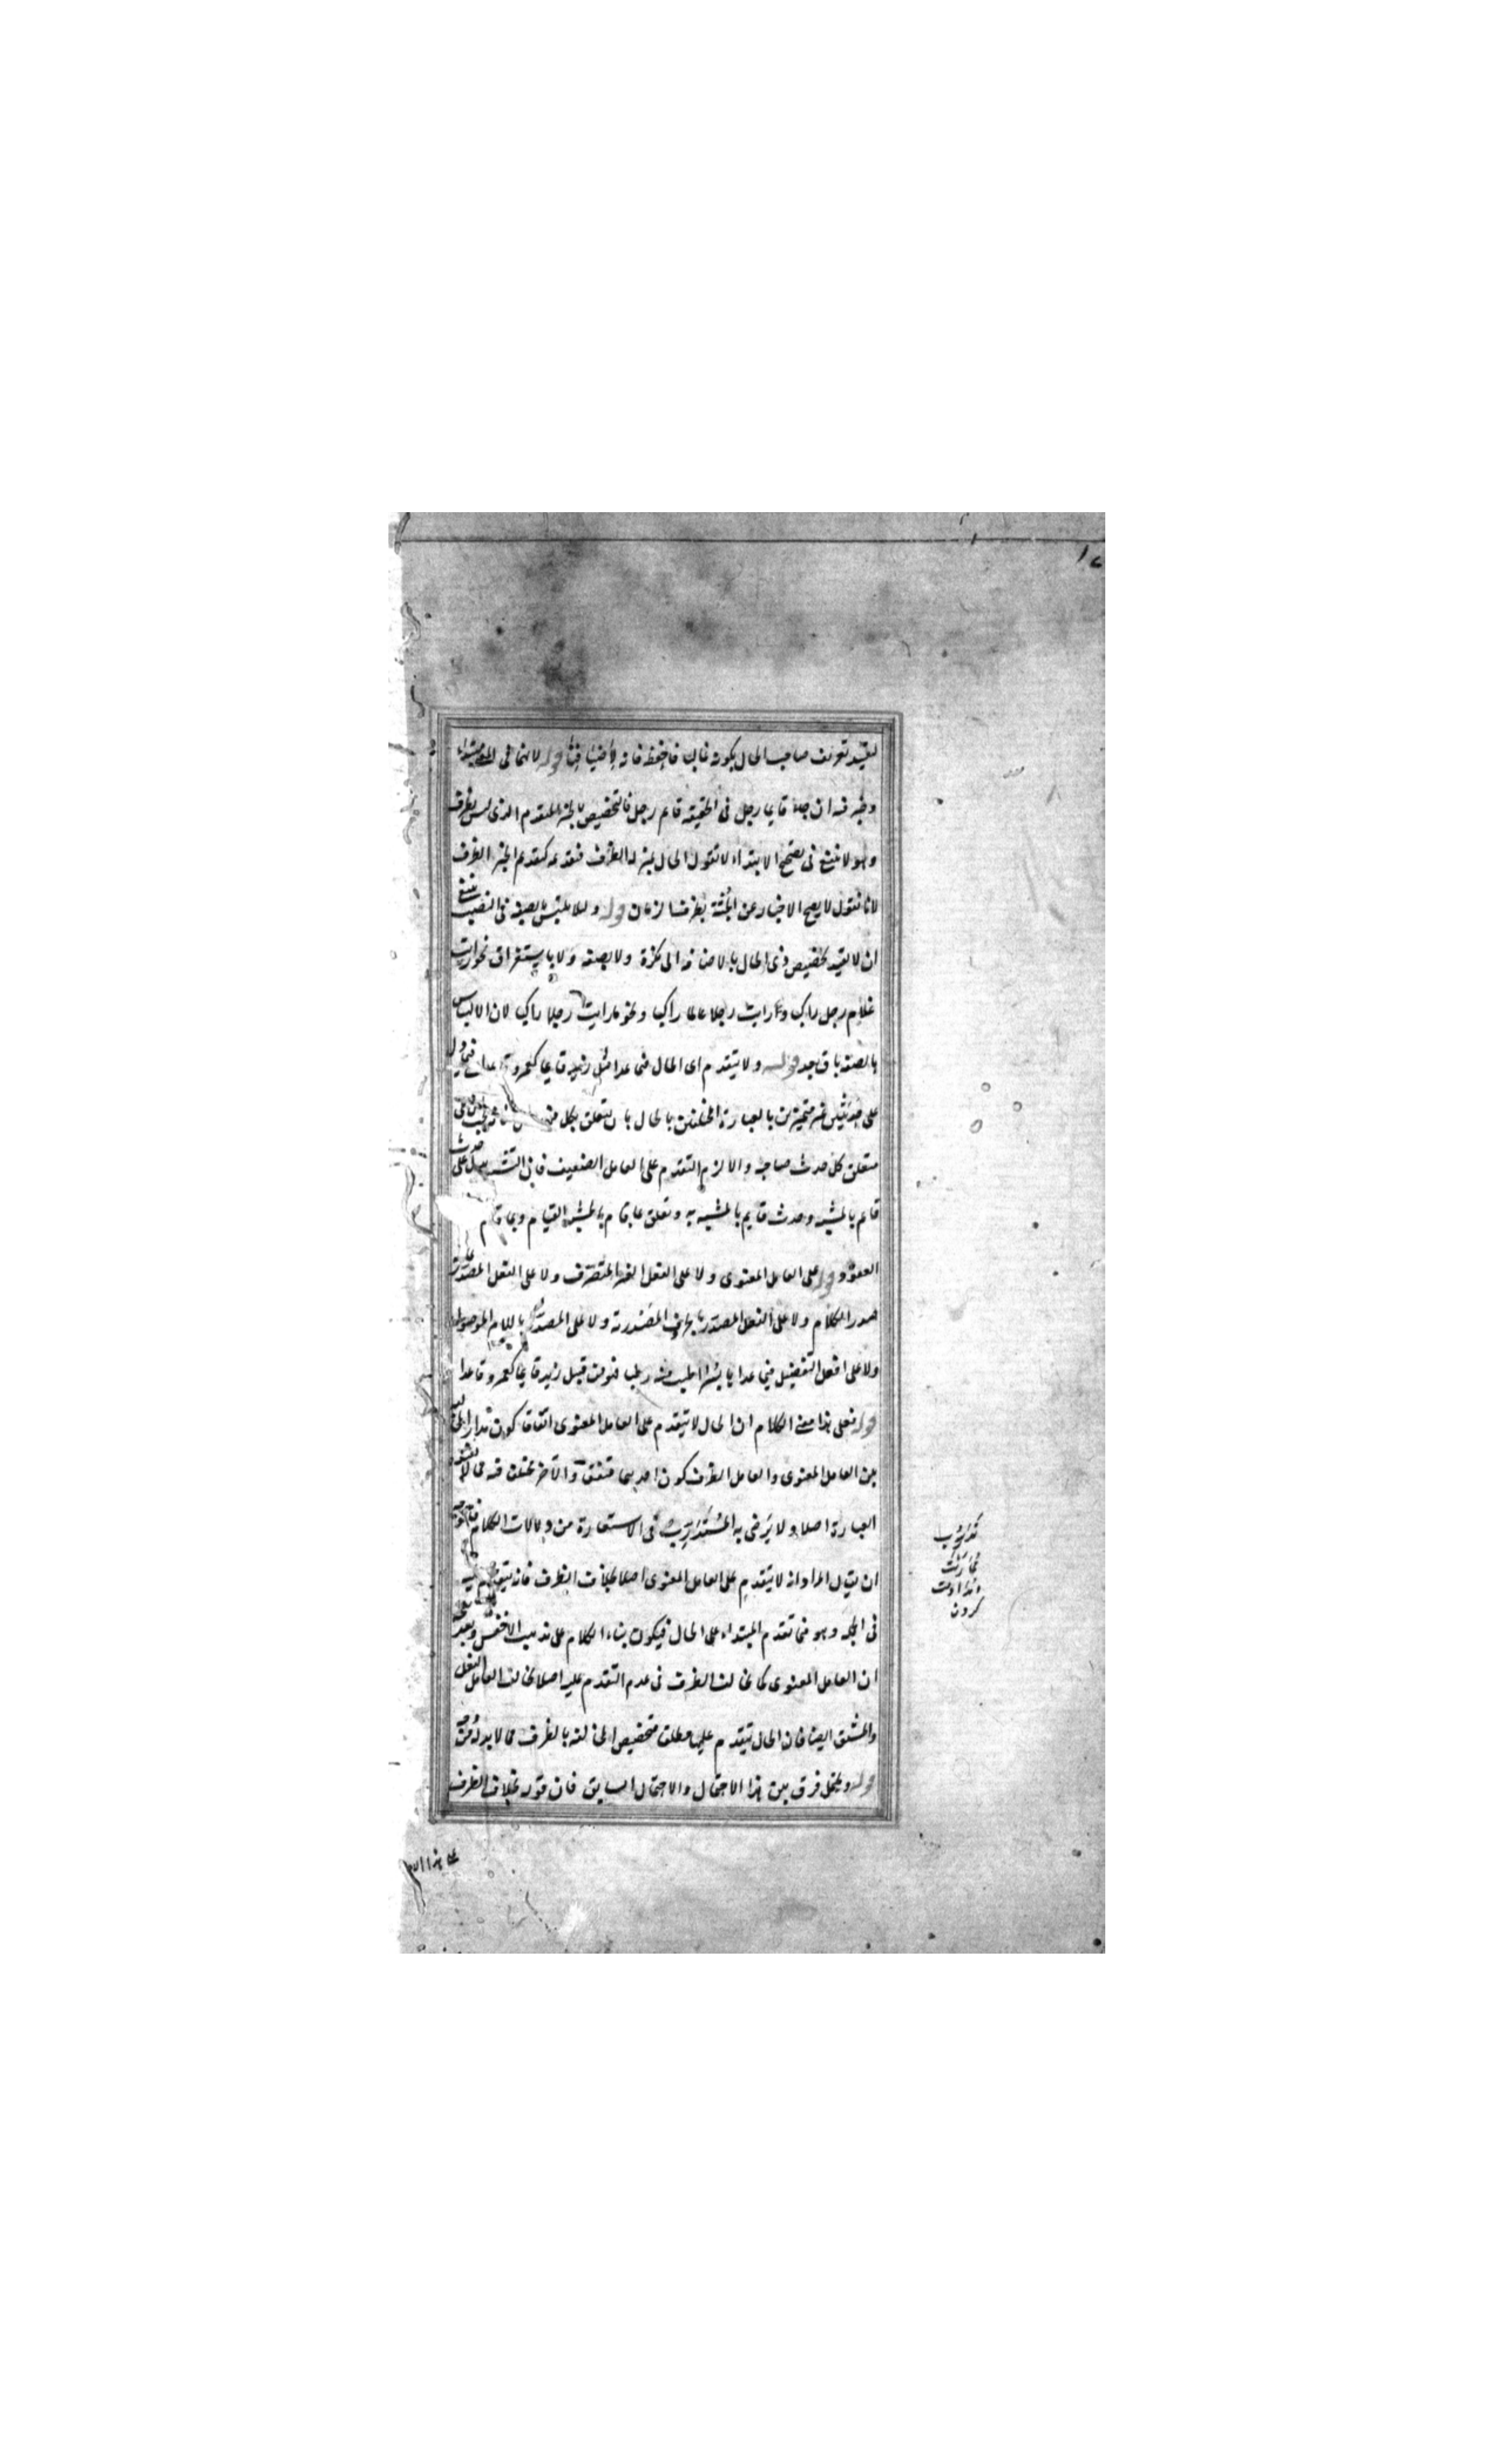 لتقييد تعريف صاحب الحال بكونه غالبا فاحفظه فانه قوله لانهما فى المعنى مبتداء
وخبر فيه ان جاء قايما رجل فى الحقيقة قايم رجل فالتخصيص بالخبر المتقدم الذى ليس بظرف
وهو لا ينفع فى تصحيح الابتداء لا نقول الحال بمنزلة الظرف فتقدمه كتقدم الخبر الظرف
لانا نقول لا يصح الاخبار عن الجثة بظرف الزمان قوله ولئلا يلتبس بالصفة فى النصب ينبغى
ان لا يقيد تخصيص ذى الحال بالاضافة الى نكرة ولا بصفة ولا باستغراق نحو رايت
غلام رجل راكبا و رايت رجلا عالما راكبا ونحو ما رايت رجلا راكبا لان الالتباس
بالصفة باق بعد قوله ولا يتقدم اى الحال فيما عدا مثل زيد قايما كعمرو قاعدا
على حدثين غير متميزين بالعبارة المختلفين بالحال بان يتعلق بكل
متعلق كل حدث صاحبه والا لزم التقدم على العامل الضعيف فان التشبيه يدل على حدث
قايم بالمشبه وحدث قايم بالمشبه به وتعلق بما قام بالمشبه القيام وبما قام
القعود قوله على العامل المعنوى ولا على الفعل الغير المتصرف ولا على الفعل المصدر بما له
صدر الكلام ولا على الفعل المصدر بالحرف المصدرية ولا على المصدر باللام الموصولة
ولا على افعل التفضيل فيما عدا بسرا اطيب منه رطبا فنوقش قبل زيد قايما كعمرو قاعدا
قوله فعلى هذا معنى الكلام ان الحال لا يتقدم على العامل المعنوى اتفاقا كون مدار المخالفة
بين العامل المعنوى والعامل الظرف كون احدهما متفقا والآخر مختلف فيه مما لا تشعر به
العبارة اصلا ولا يرضى به المتدرب فى الاستفادة من دلالات الكلام
ان يقال المراد انه لا يتقدم على العامل المعنوى اصلا بخلاف الظرف فانه يتقدم عليه
فى الجملة وهو فيما تقدم المبتداء على الحال فيكون بناء الكلام على مذهب الاخفش وبعد فيه
ان العامل المعنوى كما يخالف الظرف فى عدم التقدم عليه اصلا يخالف العامل الفعل
والمشتق ايضا فان الحال يتقدم عليهما مطلقا فتخصيص المخالفة بالظرف مما لا بد له من وجه
قوله ويحتمل فرق بين هذا الاحتمال والاحتمال السابق فان قوله بخلاف الظرف
على هذا
كردن